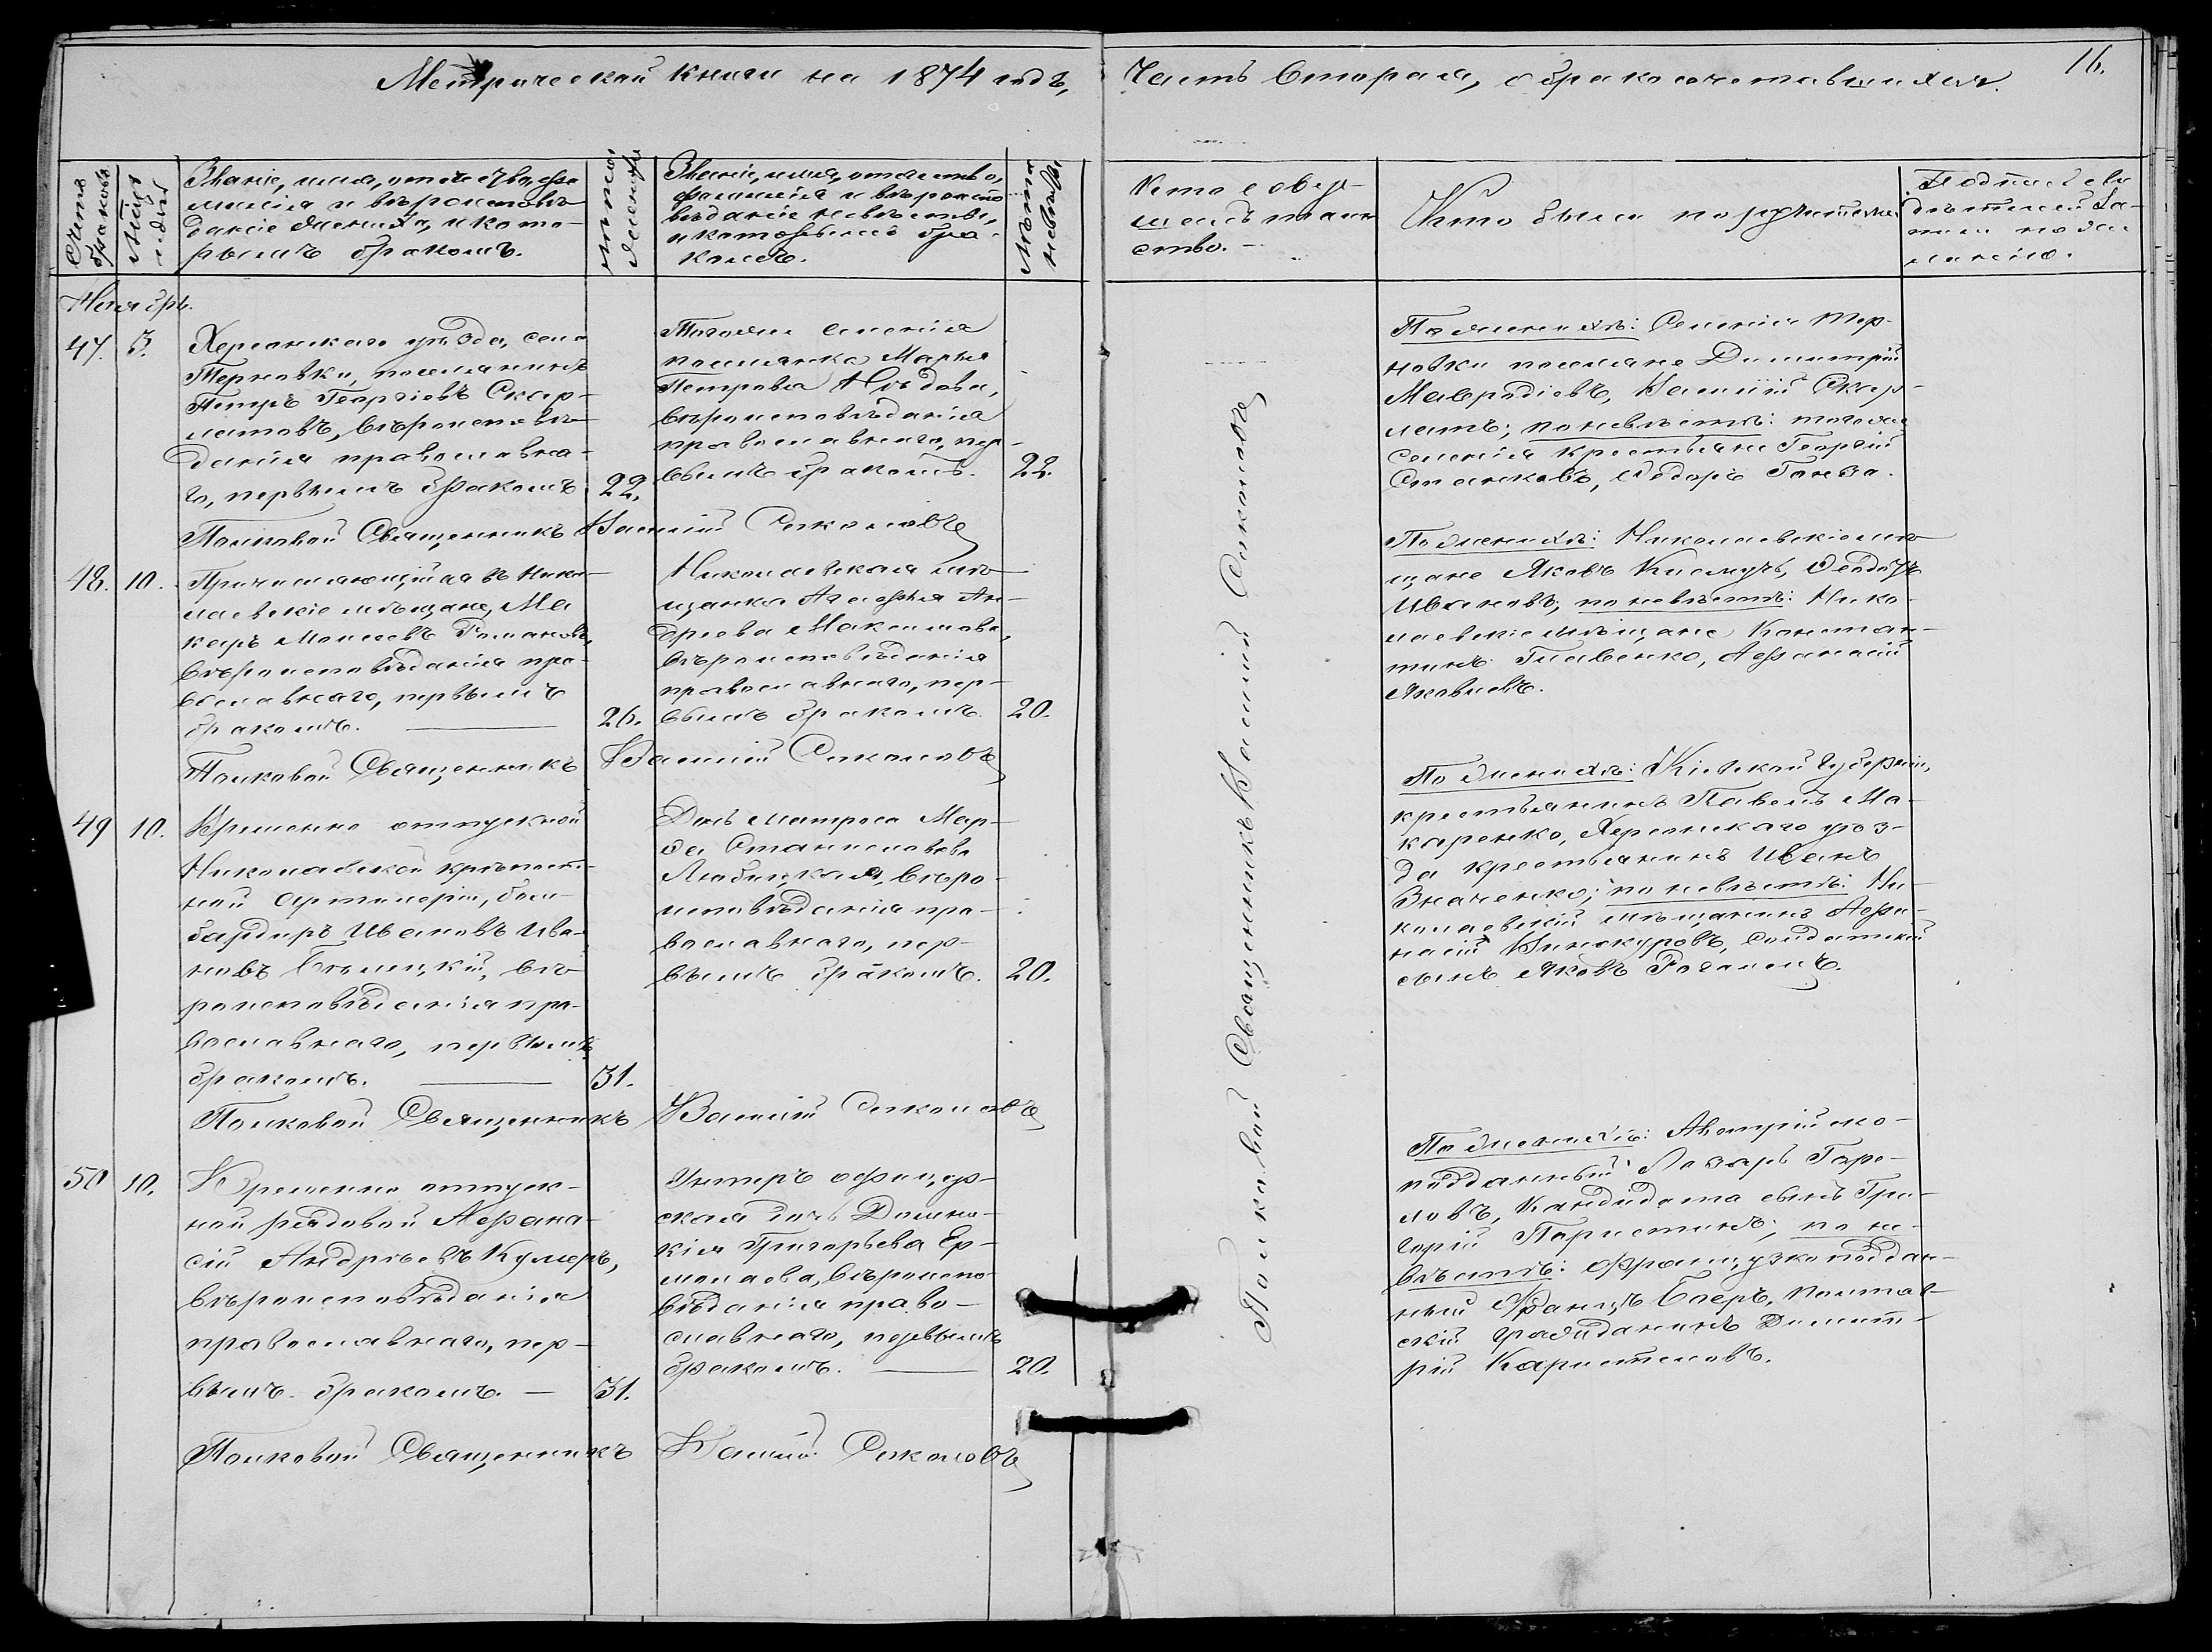 Метрической книги на 1874 годъ,
Часть Вторая, о бракосочетавшихся.
16.
Счетъ браковъ
Мѣсяцъ и дни
Званіе, имя, отчество, фа-
милія и вѣроисповѣ-
даніе жениха, и кото-
рымъ бракомъ.
Лѣта жениха
Званіе, имя, отчество,
фамилія и вѣроиспо
вѣданіе невѣсты,
и которымъ бра-
комъ.
Лѣта невѣсты
Кто совер-
шалъ таин
ство.
Кто были поручители
Подпись сви
дѣтелей за-
писи по же
ланію.
Ноябрь.
47. 3.
Херсонскаго уѣзда, села
Терновки, поселянинъ
Петръ Георгіевъ Скар-
латовъ, вѣроисповѣ-
данія православна-
го, первымъ бракомъ
22.
Тогоже селенія
поселянка Марья
Петрова
вѣроисповѣданія
православнаго, пер-
вымъ бракомъ.
22.
По женихѣ: Селенія Тер-
новки поселяне Димитрій
Мавродіевъ, Василій Скар-
латъ; по невѣстѣ: тогоже
селенія крестьяне Георгій
Станковъ, Ѳедоръ Ганза.
Полковой Священникъ Василій Соколовъ
48. 10.
Причисляющійся въ Нико-
лаевскіе мѣщане, Ма
каръ Моисеевъ Романовъ,
вѣроисповѣданія пра-
вославнаго, первымъ
бракомъ.
26.
Николаевская мѣ-
щанка Агафья Ан-
дреева Максимова,
вѣроисповѣданія
православнаго, пер-
вымъ бракомъ.
20.
По женихѣ: Николаевскіе мѣ-
щане Яковъ, Ѳеодоръ
Ивановъ; по невѣстѣ: Нико-
лаевскіе мѣщане Констан-
тинъ Главенко, Афанасій
Яковлевъ.
Полковой Священникъ Василій Соколовъ
49 10.
Временно отпускной
Николаевской крѣпост-
ной артилеріи, бом-
бардиръ Ивановъ Ива-
новъ Бѣлицкій, вѣ-
роисповѣданія пра-
вославнаго, первымъ
бракомъ.
31.
Дочь матроса Мар-
ѳа Станиславова
Любицкая, вѣро-
исповѣданія пра-
вославнаго, пер-
вымъ бракомъ.
20.
По женихѣ: Кіевской губерніи,
крестьянинъ Павелъ Ма-
каренко, Херсонскаго уѣз-
да крестьянинъ Иванъ
Значенко; по невѣстѣ: Ни-
колаевскій мѣщанинъ Афа-
насій Винокуровъ, солдатскій
сынъ Яковъ Рогалецъ.
Полковой Священникъ Василій Соколовъ
50 10.
Временно отпуск-
ной рядовой Афана-
сій Андреевъ Кушеръ,
вѣроисповѣданія
православнаго, пер-
вымъ бракомъ.
31.
Унтеръ офицер-
ская дочь Домни-
кія Григорьева Ер-
молаева, вѣроиспо-
вѣданія право-
славнаго, первымъ
бракомъ.
20.
По женихѣ: Австрійско-
подданный Лазарь Гаре-
ловъ, кандидата сынъ Гри-
горій Паристинъ; по не-
вѣстѣ: французкоподдан-
ный Францъ Боеръ, полтав-
скій гражданинъ Димит-
рій Каристеловъ.
Полковой Священникъ Василій Соколовъ
Полковой Священникъ Василій Соколовъ